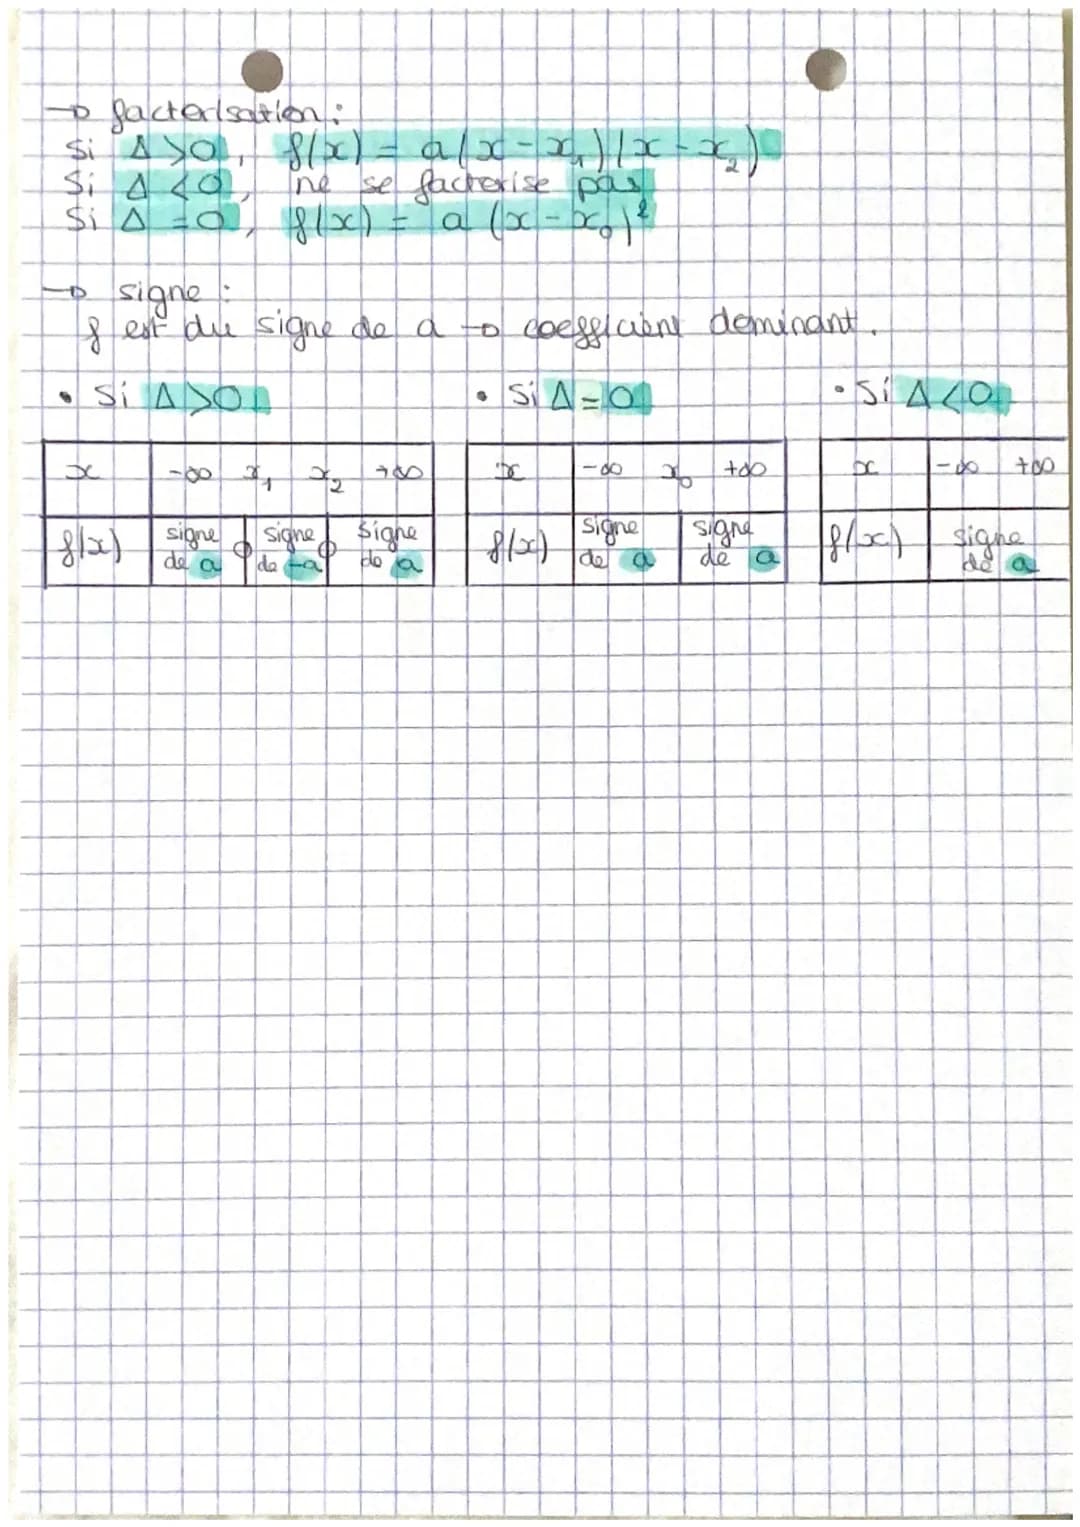 → factorisation :
Si Δ>0, f(x) = a(x-x₁)(x-x₂)
Si Δ<0, ne se factorise pas
Si Δ=0, f(x) = a (x-x₀)²
→ signe :
f est du signe de a → coefficient dominant.
• Si Δ>0
• Si Δ=0
• Si Δ<0
x -∞ x₁ x₂ +∞
f(x) signe de a 0 signe de -a 0 signe de a
x -∞ x₀ +∞
f(x) signe de a signe de a
x -∞ +∞
f(x) signe de a